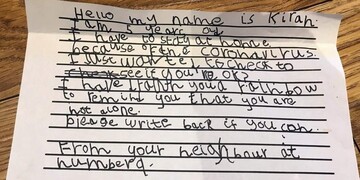 Hello my name is Kirah.
I am 5 years old
I have to stay at home
because of the coronavirus
I Just wanted to check to
see if you're ok?
I have drawn you a rainbow
to remind you that you are
not alone.
please write back if you can.
From your neighbour at
number 9.